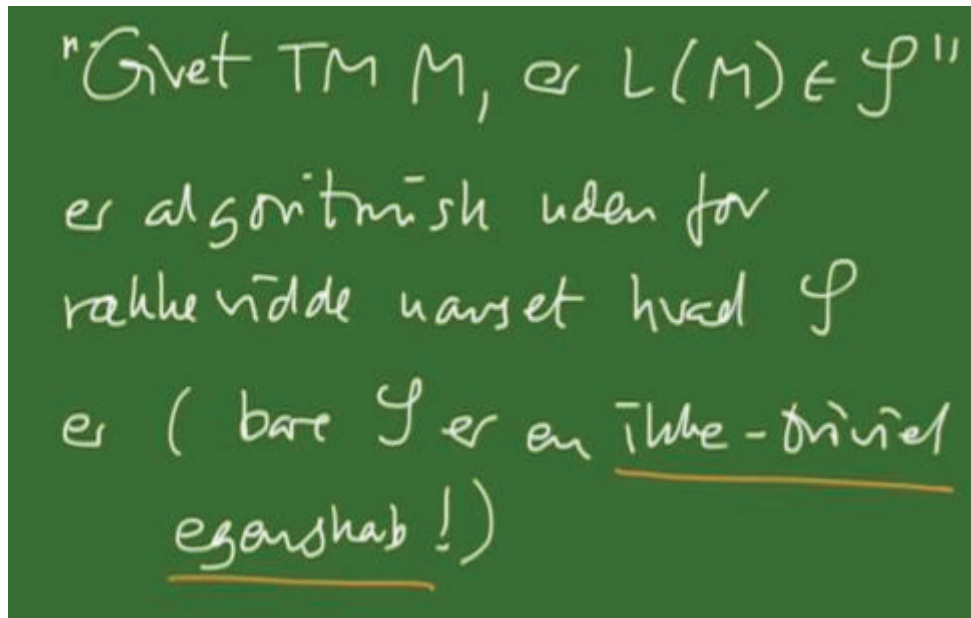 "Givet TM M, er L(M) ∈ 𝒮"
er algoritmisk uden for
rækkevidde uanset hvad 𝒮
er ( bare 𝒮 er en ikke-triviel
egenskab!)